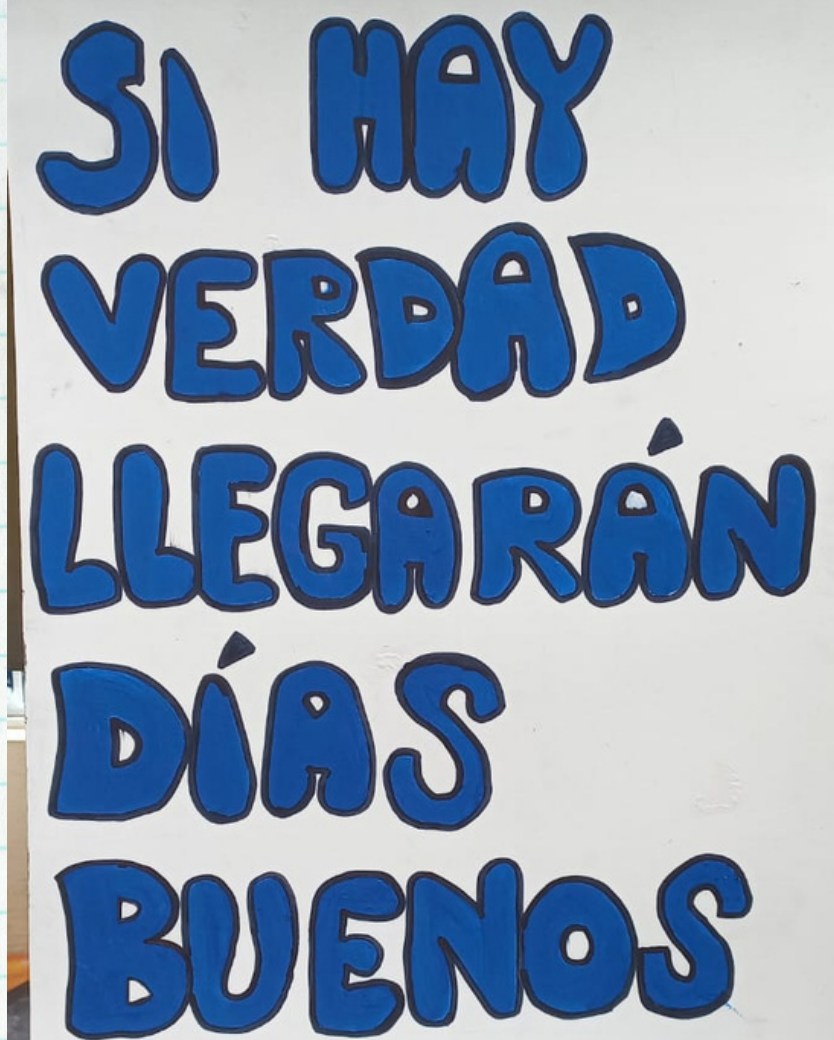 SI HAY
VERDAD
LLEGARÁN
DÍAS
BUENOS